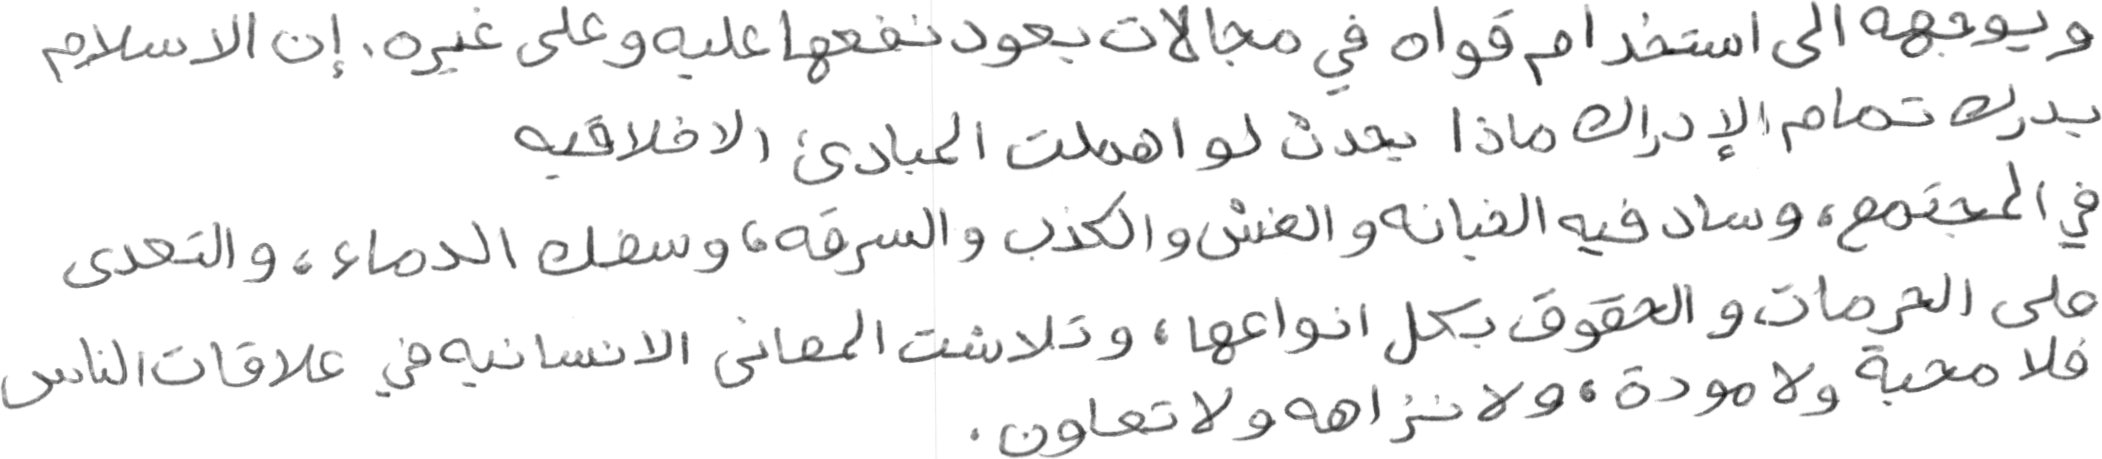 ويوجهه الى استخدام قواه في مجالات يعود نفعها عليه وعلى غيره. إن الاسلام
يدرك تمام الإدراك ماذا يحدث لو اهملت المبادئ الاخلاقيه
في المجتمع، وساد فيه الخيانه والغش والكذب والسرقه، وسفك الدماء، والتعدى
على الحرمات والحقوق بكل انواعها، وتلاشت المعانى الانسانيه في علاقات الناس
فلا محبة ولا مودة، ولا نزاهه ولا تعاون.